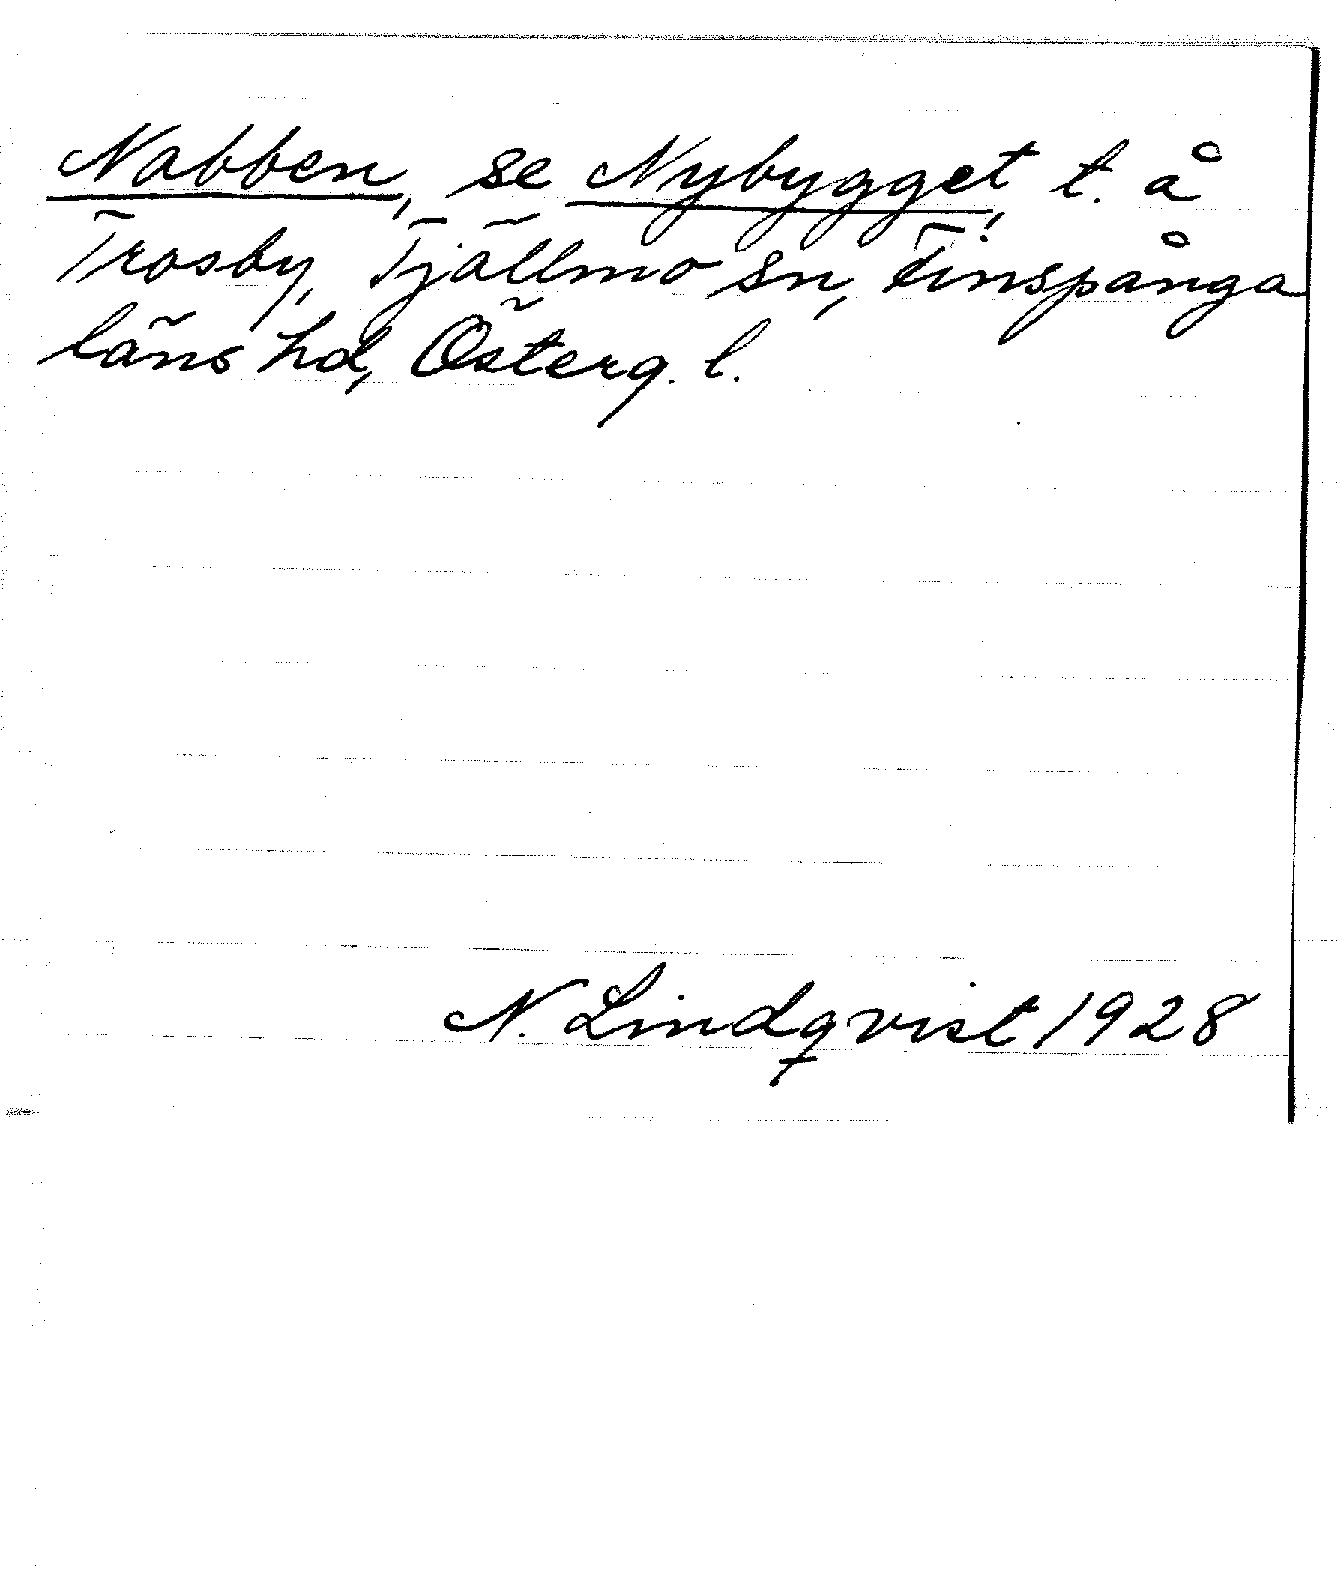 Nabben, se Nybygget, t. å
Trosby, Tjällmo sn, Finspånga
läns hd, Österg. l.
N. Lindqvist 1928